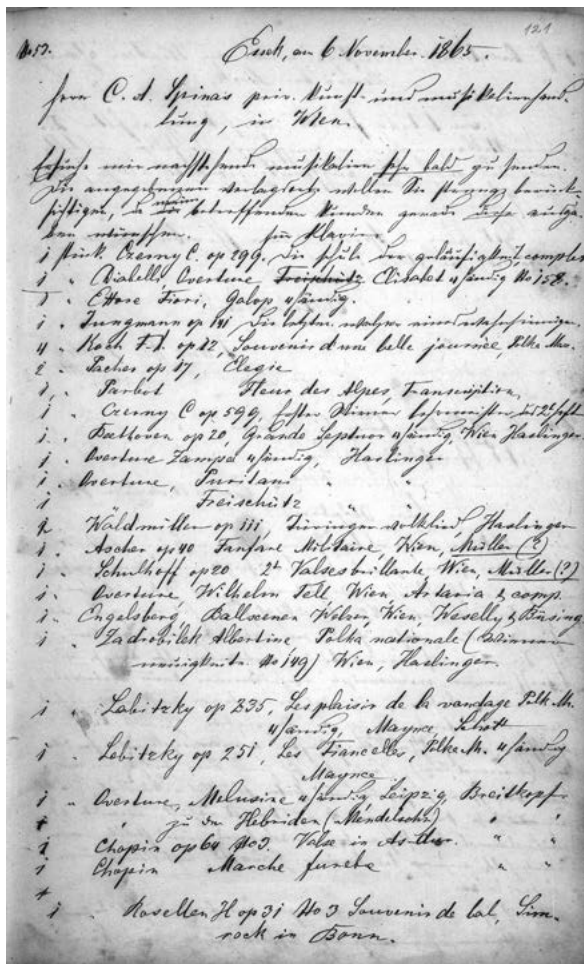 121
No 53. Essek, am 6 November. 1865.
Herrn C. A. Spina's priv. Kunst- und Musikalienhand-
lung, in Wien.
Ersuche mir nachstehende Musikalien sehr bald zu senden.
Die angegebenen Verlagsorte wollen Sie strenge berück-
sichtigen, da betreffenden Kunden gerade diese Ausga-
ben wünschen. für Klavier
1 Stück. Czerny C. op 299. Die Schule der Geläufigkeit, complet
1 " Diabelli, Overture Freischütz Elisabet 4händig No 158.
1 " Ettore Fiori, Galop 4händig.
1 " Jungmann op 141 Die letzten Walzer eines Wahnsinnigen.
4 " Koch F. op. 12, Souvenir d'une belle journée, Polke Maz.
2 " Pacher op 17, Elegie
1. " Parbot Fleur des Alpes, Transcription
1 " Czerny C op 599, Erster Wiener Lehrmeister, 2t Heft
1 " Beethoven op 20, Grande Septuor 4händig, Wien Haslinger
1 " Overture Zampa 4händig, Haslinger
1 " Overture, Puritani " "
1 Freischütz " "
2 Waldmüller op 111, Türinger Volkslied, Haslinger
1. " Ascher op 40 Fanfare Militaire, Wien, Müller (?)
1. " Schulhoff op 20 2t Valse brillante Wien, Müller (?)
1 " Overture, Wilhelm Tell, Wien, Artaria & comp.
1 " Engelsberg, Ballscenen Walzer, Wien, Wessely & Büsing
1. " Zadrobilek Albertine Polka nationale (Wiener
Neuigkeiten No 149) Wien, Haslinger.
1 " Labitzky op 235, Les plaisir de la vandage Polk M.
4händig, Maynce, Schott
1 " Lebitzky op 251, Les Fiancelles, Polke M. 4händig
Maynce
1 " Overture, Melusine 4händig Leipzig, Breitkopf
+ " zu den Hebriden (Mendelsohn) " "
1 Chopin op 64 No 3. Valse in As-dur. " "
1 Chopin Marche funebe " "
+
1 " Rosellen H op 31 No 3 Souvenir de bal, Sim-
rock in Bonn.